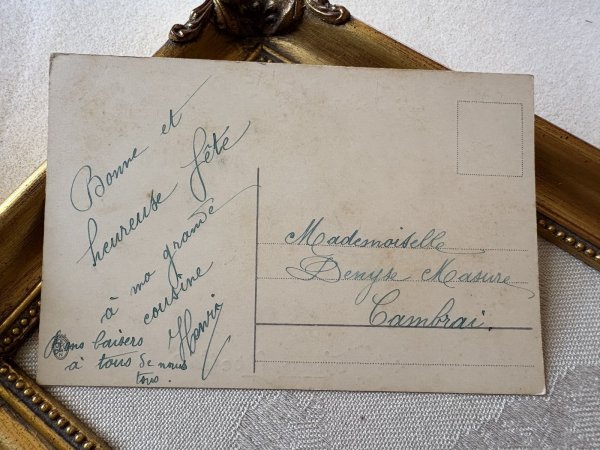 Bonne et
heureuse fête
à ma grande
cousine
Henri
Bons baisers
à tous de nous
tous.
Mademoiselle
Denyse Masure
Cambrai.